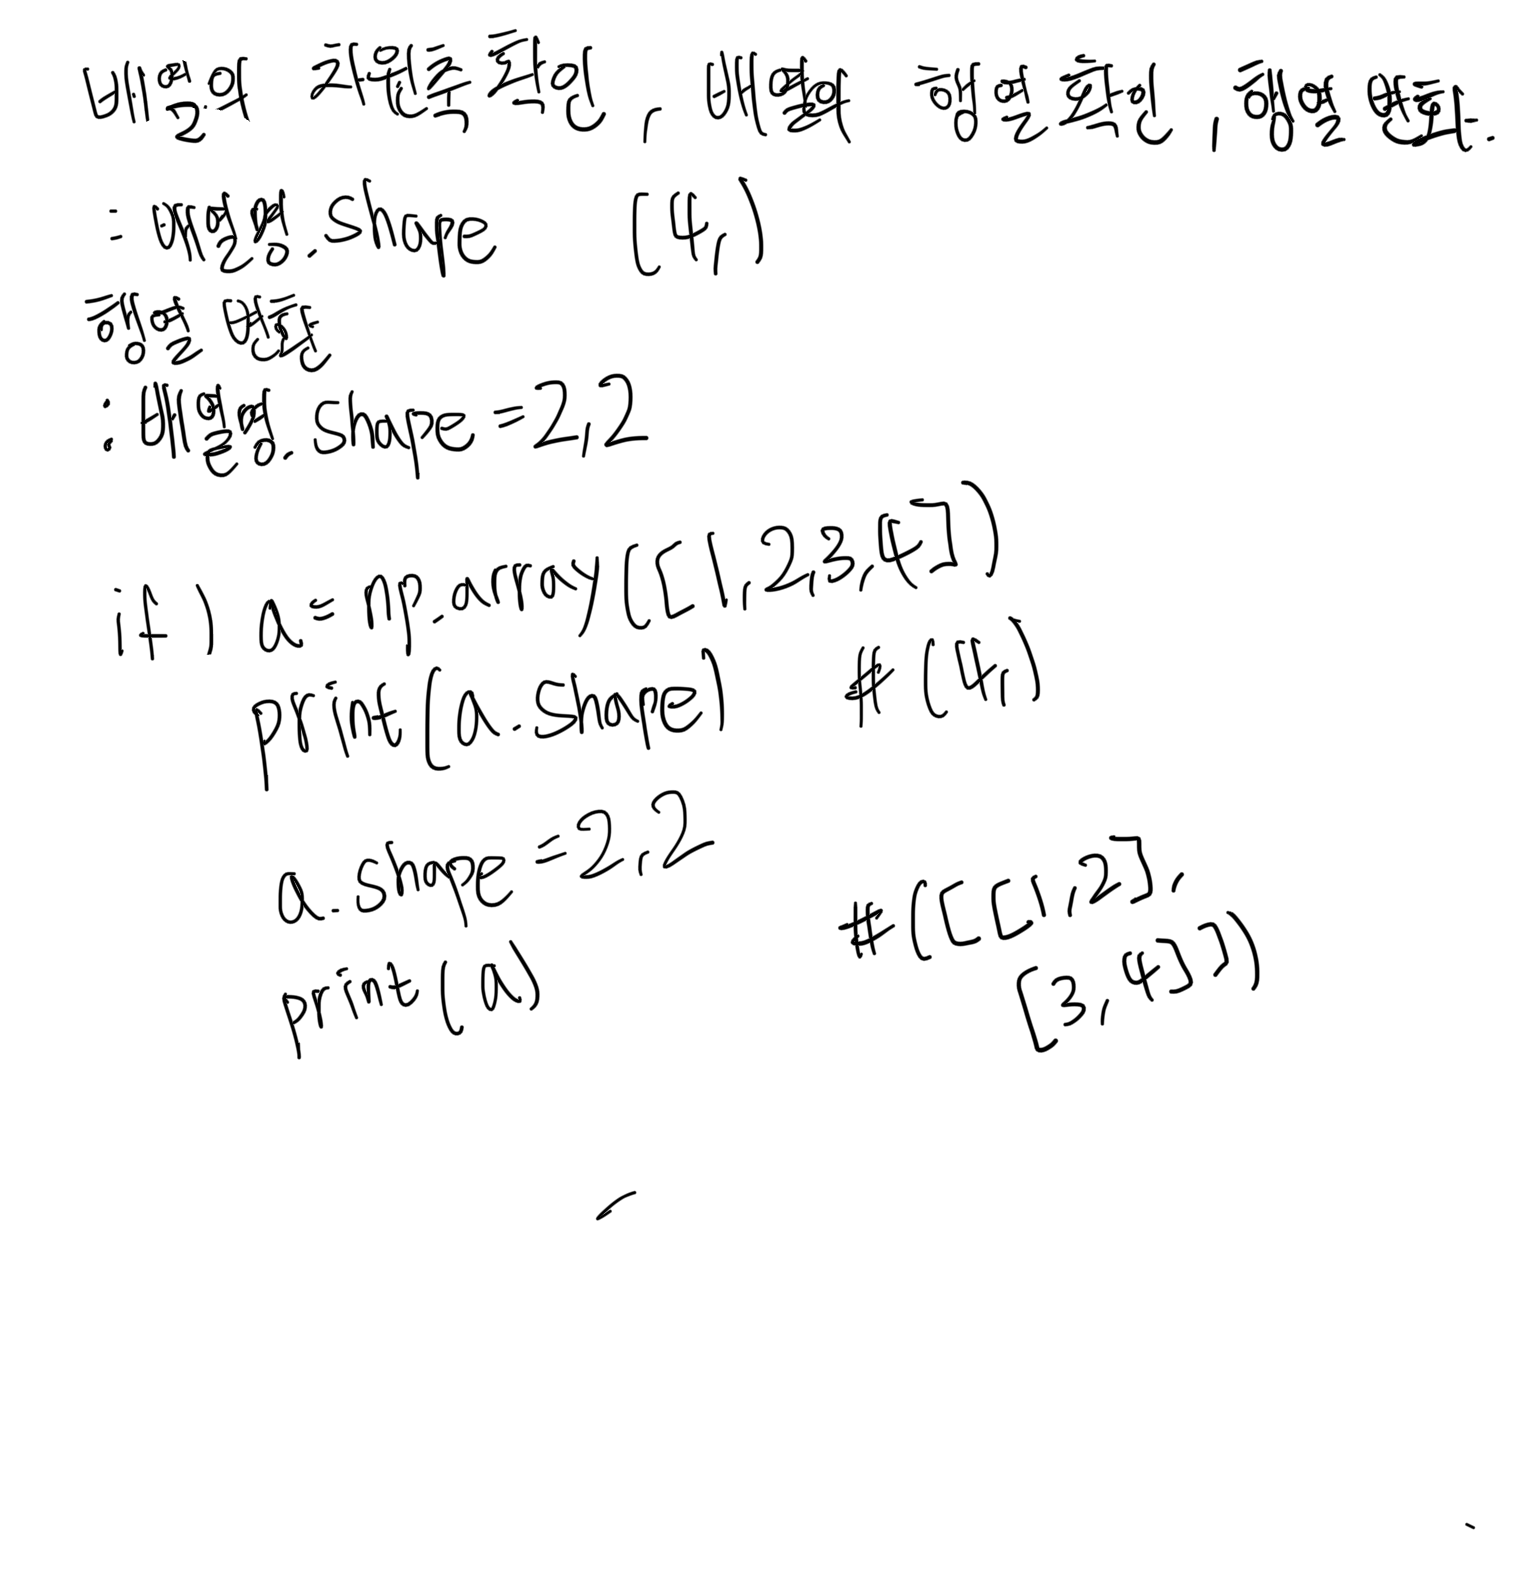 배열의 차원축 확인, 배열의 행열 확인, 행열 변화.
: 배열명.shape (4,)
행열 변환
: 배열명.shape=2,2
if) a= np.array([1,2,3,4])
print(a.shape) # (4,)
a.shape=2,2
print(a) #([[1,2],
[3,4]])